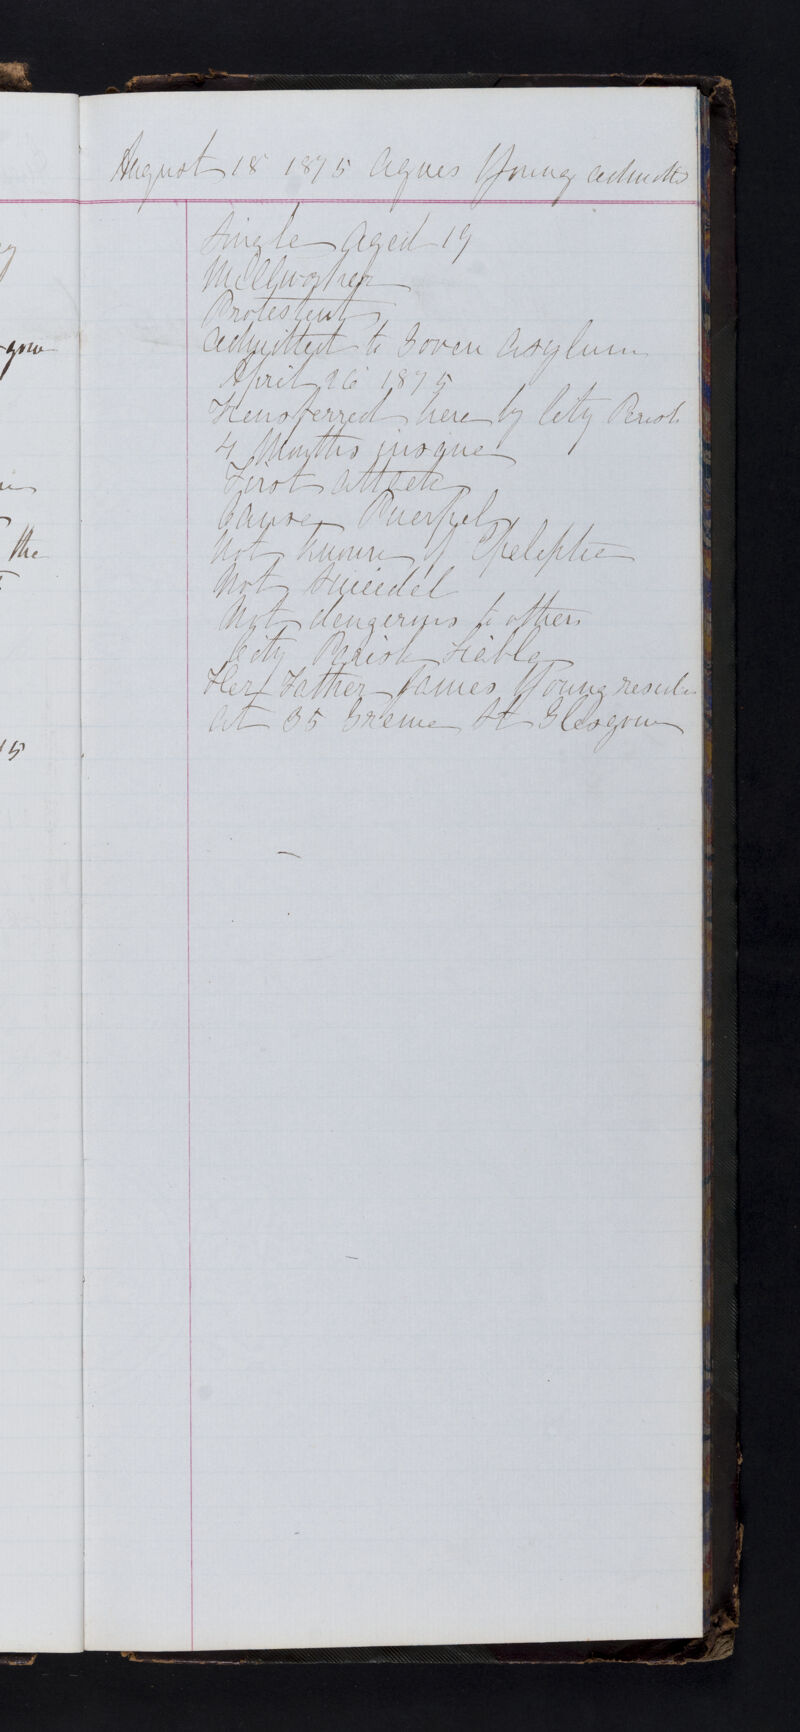 August 18 1875 Agnes Young admitted
Single Aged 19
Millworker
Protestant
Admitted to Govan Asylum
April 26 1875
Transferred here by City Parish
4 Months insane
First attack
Cause Puerpel
Not known if Epeleptic
Not Suicidel
Not dangerus to others
City Parish Liable
Her Father James Young resides
at 35 Greme St Glasgow
gow
the
15